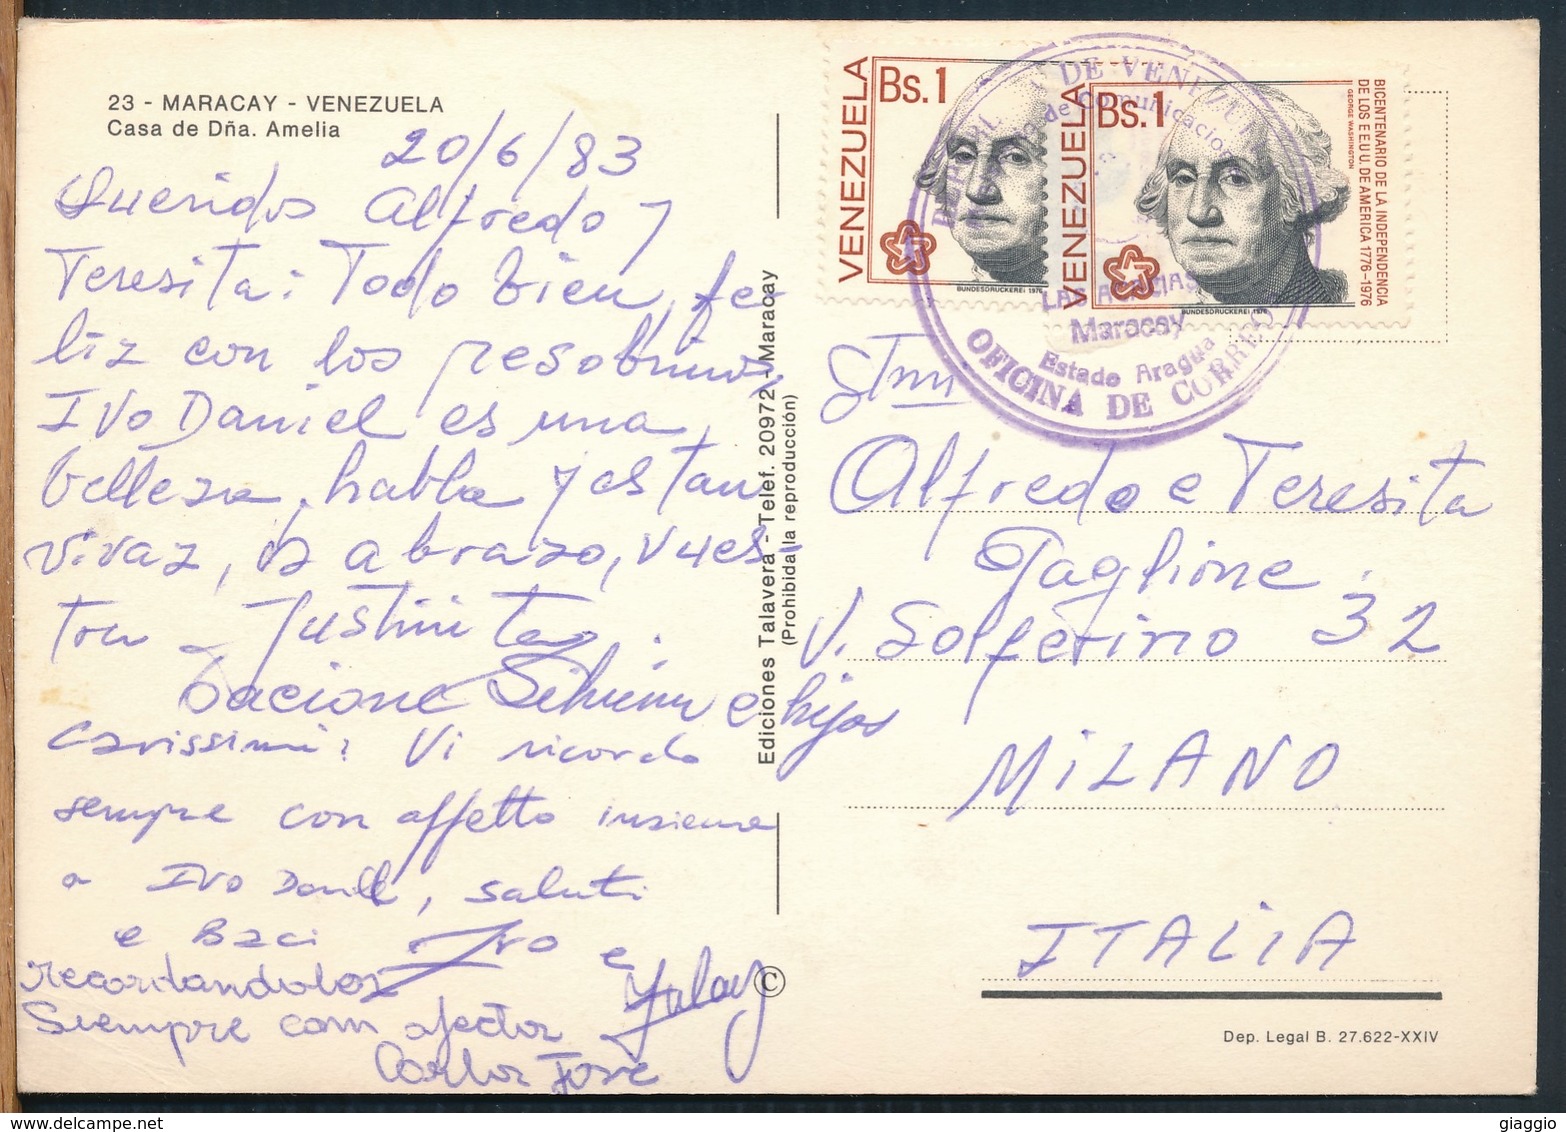 23 - MARACAY - VENEZUELA
Casa de Dña. Amelia
20/6/83
Queridos Alfredo y
Teresita: Todo bien, fe-
liz con los pesobrinos,
Ivo Daniel es una
belleza, habla y es tan
vivaz, os abrazo, vues-
tra Justinita
e hijos
Carissimi: Vi ricordo
sempre con affetto insieme
a Ivo Daniel, saluti
e Baci Ivo e
Yulay
recordandolos
Siempre con afector
Carlos Jose
Ediciones Talavera - Telef. 20972 - Maracay
(Prohibida la reproducción)
©
VENEZUELA
Bs. 1
BUNDESDRUCKEREI 1976
VENEZUELA
Bs. 1
BICENTENARIO DE LA INDEPENDENCIA
DE LOS EE.UU. DE AMERICA 1776-1976
GEORGE WASHINGTON
BUNDESDRUCKEREI 1976
DE VENEZUELA
de Comunicaciones
LAS ACACIAS
Maracay
Estado Aragua
OFICINA DE CORREO
Alfredo e Teresita
Taglione
V. Solferino 32
MiLANO
ITALiA
Dep. Legal B. 27.622-XXIV
giaggio